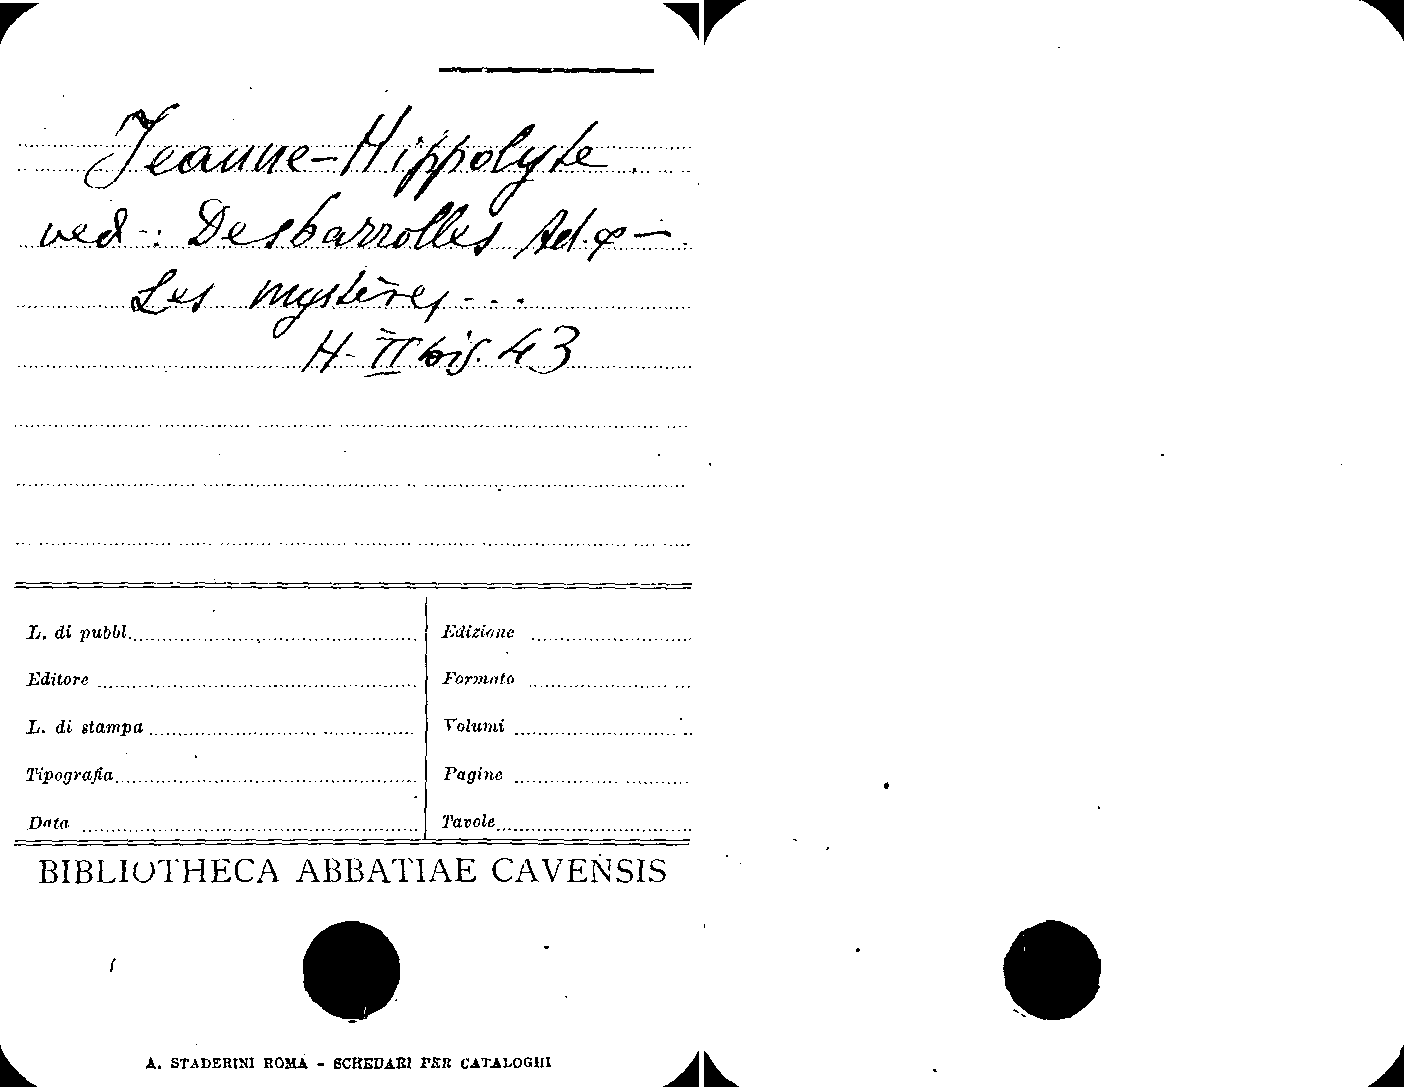 Jeanne-Hippolyte.
ved.: Desbarrolles Ad. φ —
Les mystères...
H-II bis. 43
L. di pubbl. Edizione
Editore Formato
L. di stampa Volumi
Tipografia Pagine
Data Tavole
BIBLIOTHECA ABBATIAE CAVENSIS
A. STADERINI ROMA - SCHEDARI PER CATALOGHI